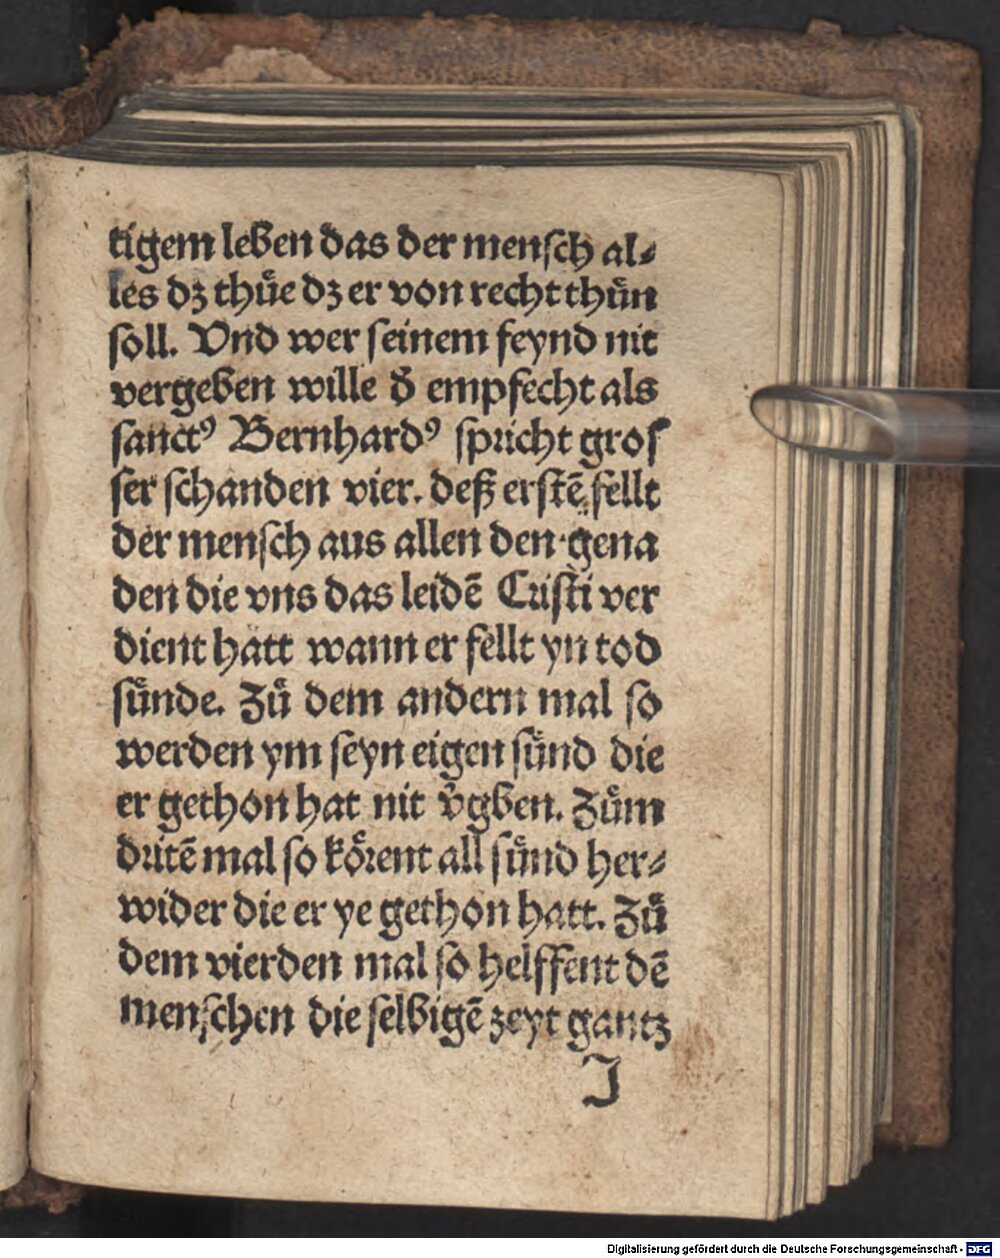 tigem leben das der mensch al⸗
les dz thuͤe dz er von recht thuͤn
soll. Vnd wer seinem feynd nit
vergeben wille d̄ empfecht als
sanctꝰ Bernhardꝰ spricht gros
ser schanden vier. deß erstē fellt
der mensch aus allen den gena
den die vns das leidē Cristi ver
dient hatt wann er fellt yn tod
suͤnde. Zuͤ dem andern mal so
werden ym seyn eigen suͤnd die
er gethon hat nit v̄gben. Zuͤm
dritē mal so koͤrent all suͤnd her⸗
wider die er ye gethon hatt. Zuͤ
dem vierden mal so helffent dē
menschen die selbigē zeyt gantz
J
Digitalisierung gefördert durch die Deutsche Forschungsgemeinschaft - DFG